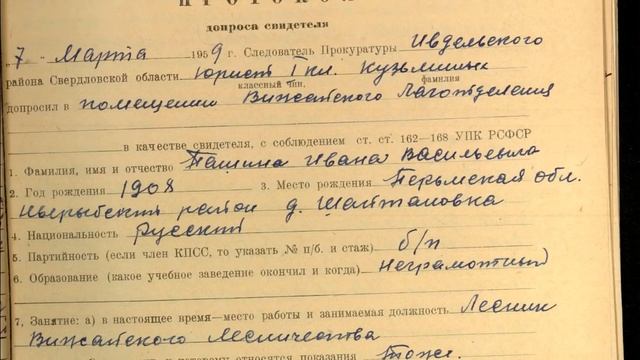 ПРОТОКОЛ
допроса свидетеля
„7" Марта 1959 г. Следователь Прокуратуры Ивдельского
района Свердловской области Юрист I кл. Кузьминых
классный чин, фамилия
допросил в помещении Вижайского Лаготделения
в качестве свидетеля, с соблюдением ст. ст. 162—168 УПК РСФСР
1. Фамилия, имя и отчество Пашина Ивана Васильевича
2. Год рождения 1908 3. Место рождения Перьмская обл.
район д. Шайтановка
4. Национальность Русский
5. Партийность (если член КПСС, то указать № п/б. и стаж) б/п
6. Образование (какое учебное заведение окончил и когда) Неграмотный
7. Занятие: а) в настоящее время—место работы и занимаемая должность Лесник
Вижайского Лесничества
которому относятся показания Тоже